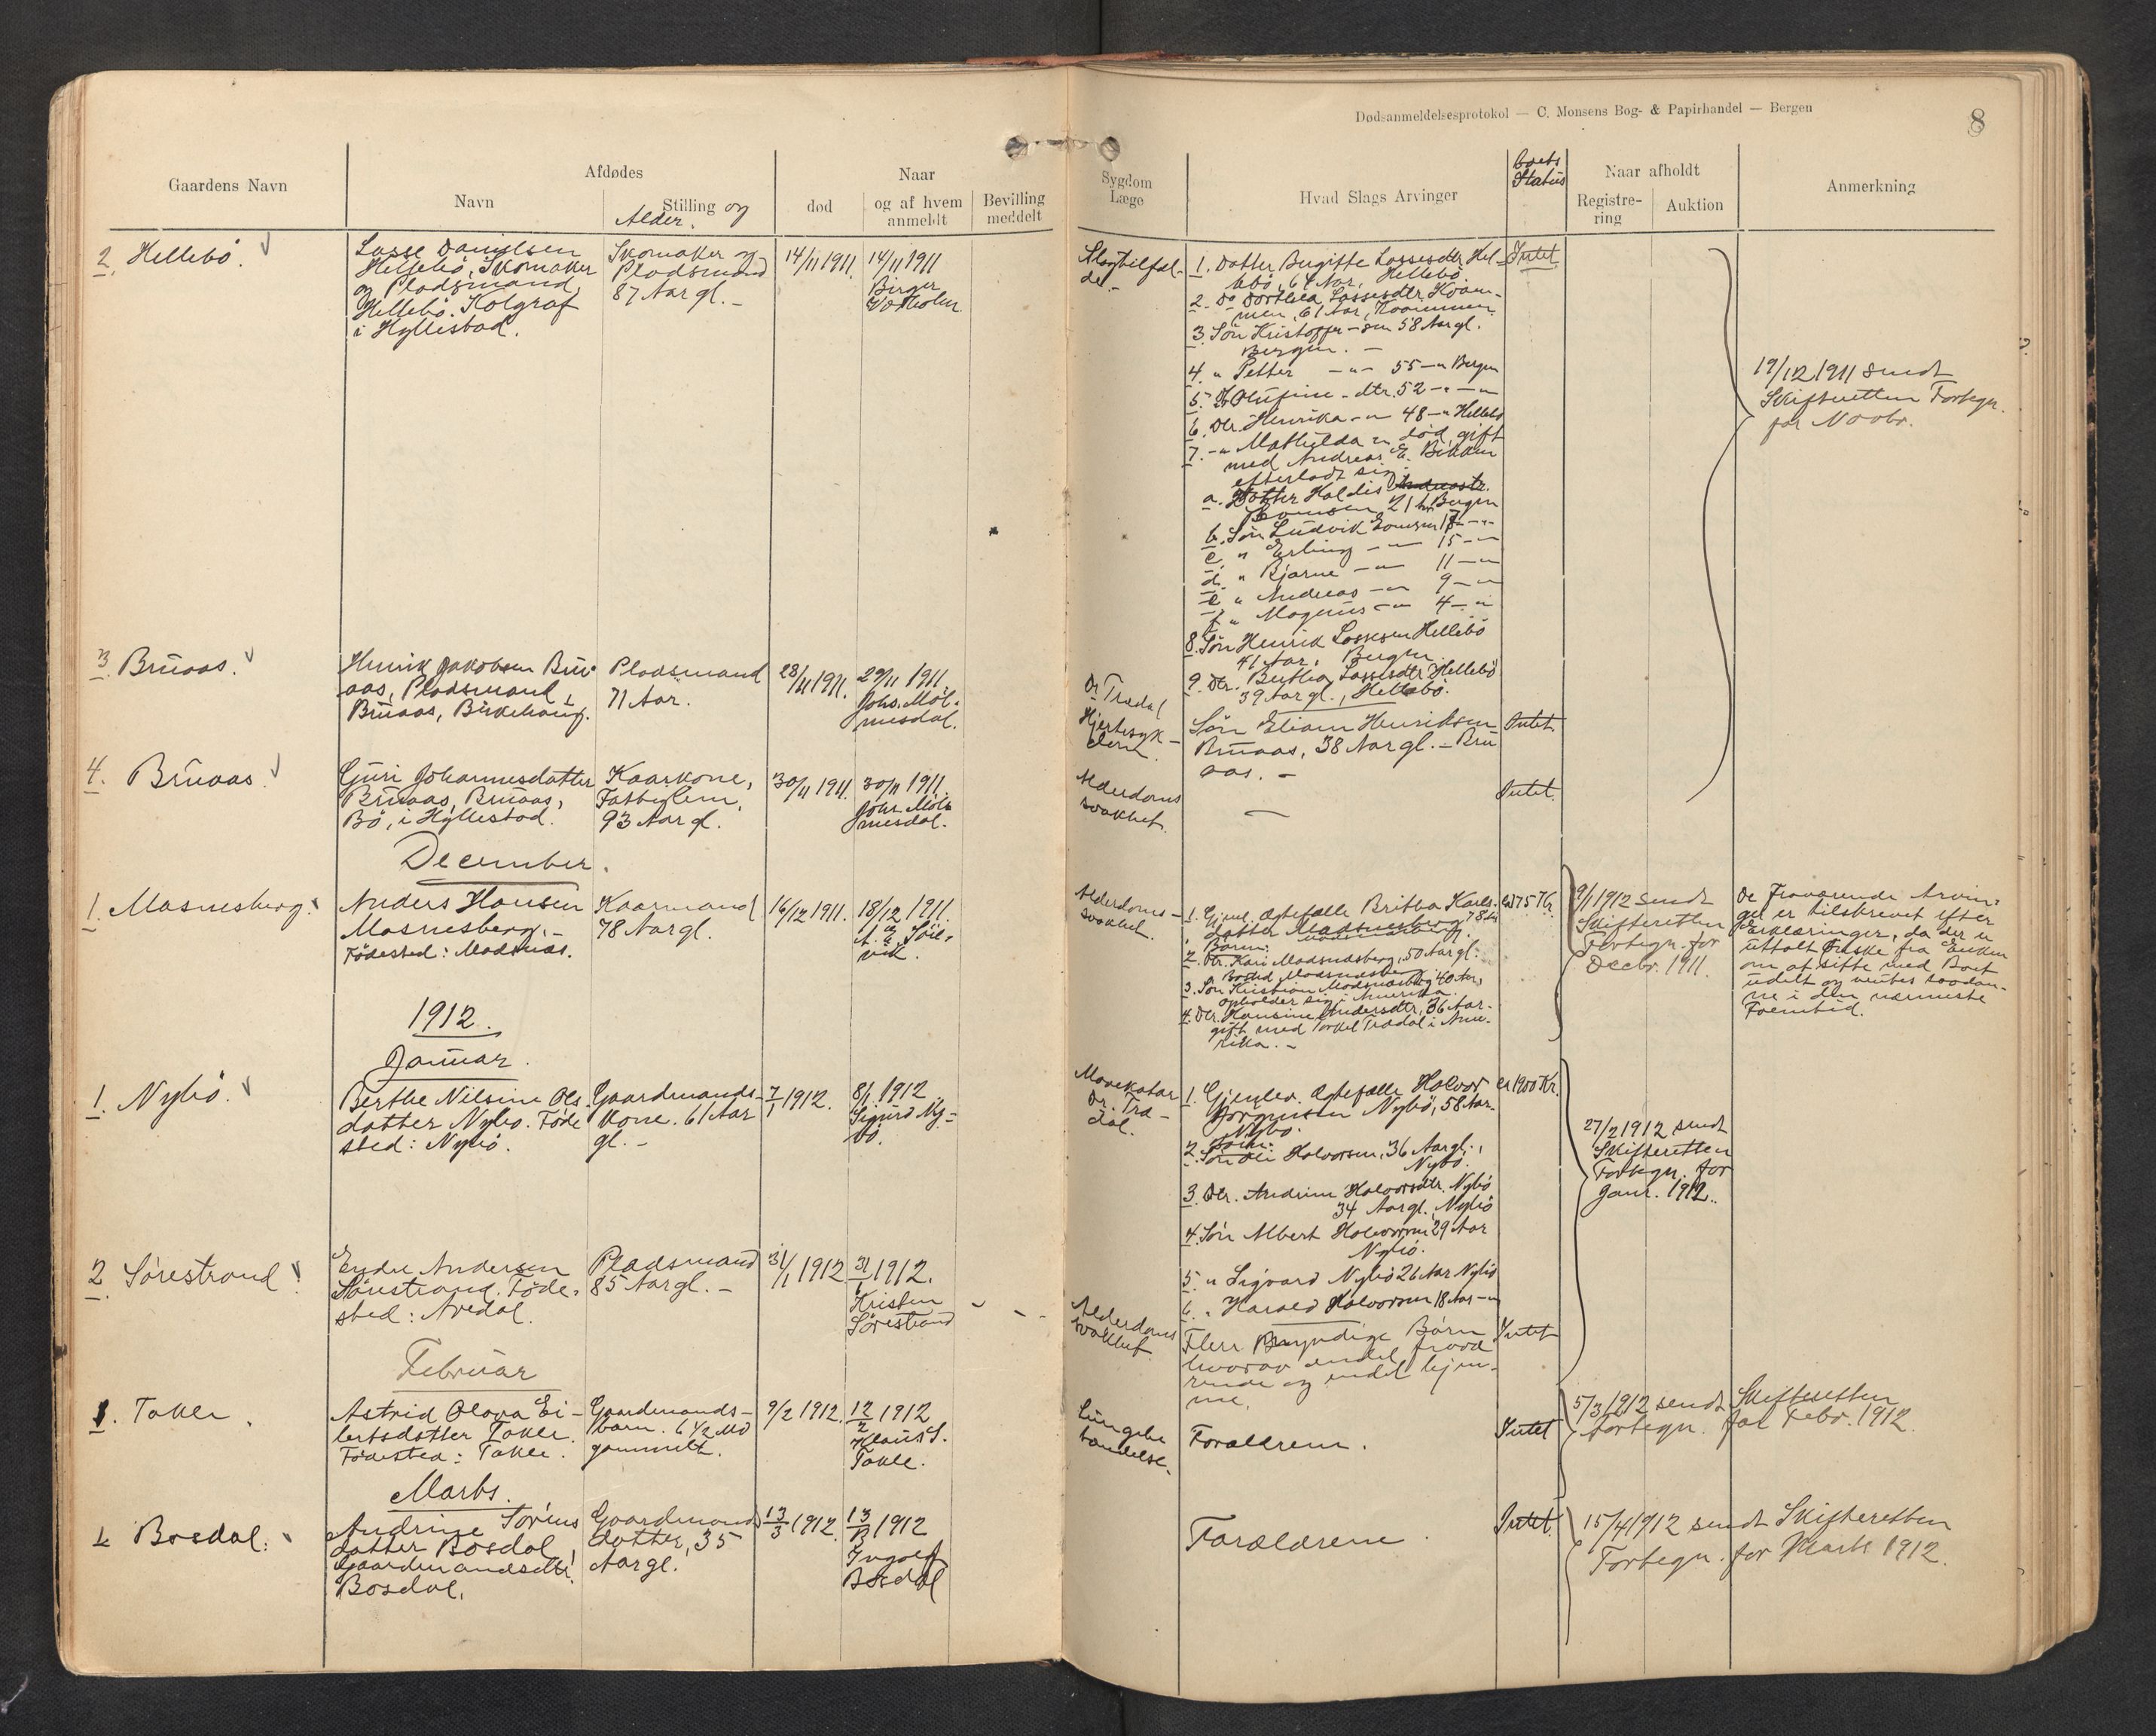 Dødsanmeldelsesprotokol — C. Monsens Bog- & Papirhandel — Bergen
8
Gaardens Navn
Afdødes
Navn
Stilling og
Alder.
Naar
død
og af hvem
anmeldt
Bevilling
meddelt
Sygdom
Læge
Hvad Slags Arvinger
Boets
Status
Naar afholdt
Registre-
ring
Auktion
Anmerkning
2. Hellebö.
Lasse Danielsen
Hellebö, Skomaker
og Pladsmand,
Hellebö. Kolgraf
i Hyllestad.
Skomaker og
Pladsmand
87 Aar gl. -
14/11 1911.
14/11 1911
Birger
Slagtilfæl-
de. -
1. Datter Birgitte Lassesdtr. Hel-
lebö, 64 Aar, Hellebö.
2. Do Dorthea Lassesdtr. Kvam-
men, 61 Aar, Kvammen
3. Sön Kristoffer - sen 58 Aar gl.
Bergen. -
4. " Petter - " - 55 - " Bergen
5. Olufine - dtr. 52 - " - "
6. Dtr. Henrika - " 48 - " Hellebö
7. - " Mathilda " död, gift
med Andreas E.
efterladt sig:
a. Datter Haldis
21 Aar Bergen
b. Sön Ludvik 17 - "
c. " Erling - " 15 - "
d. " Bjarne - " 11 - "
e " Andreas - " 9 - "
f " Magnus - " 4 - "
8. Sön Henrik Lassesen Hellebö
41 Aar, Bergen.
9. Dtr. Berthea Lassesdtr Hellebö
39 Aar gl., Hellebö.
Intet
19/12 1911 sendt
Skifteretten Fortegn.
for Novbr.
3. Brüaas.
Henrik Jakobsen Brü-
aas, Pladsmand,
Brüaas, Birkehaug.
Pladsmand
71 Aar.
28/11 1911.
29/11 1911
Johs. Möl-
mesdal.
Dr Trædal
Hjertesyk-
dom
Sön Eliam Henriksen
Brüaas, 38 Aar gl. - Brü
aas. -
Intet
4. Brüaas.
Guri Johannesdatter
Brüaas, Brüaas,
Bö, i Hyllestad.
Kaarkone,
Fattiglem,
93 Aar gl.
30/11 1911.
30/11 1911.
Johs. Möl-
mesdal.
Alderdoms
svakhet.
—
Intet.
December.
1. Masnesberg.
Anders Hansen
Masnesberg. -
Födested: Madsnæs.
Kaarmand
78 Aar gl.
16/12 1911.
18/12 1911.
A. E. Söre-
vik.
Alderdoms-
svakhet.
1. Gjenl. Ægtefælle Britha Karls-
datter Madsnesberg, 78 Aar
Börn:
2. Dtr. Kari Madsnæsberg, 50 Aar gl.
Bosted Madsnæsberg
3. Sön Kristian Madsnæsberg 40 Aar,
opholder sig i Amerika.
4. Dtr. Hansine Andersdtr, 36 Aar -
gift med Torkel Trædal i Ame-
rika. -
ca 75 Kr.
9/1 1912 sendt
Skifteretten
Fortegn. for
Decbr. 1911.
De Fraværende Arvin-
ger er tilskrevet efter
Erklæringer, da der er
uttalt Önske fra Enken
om at sitte med Boet
udelt og ventes saadan-
ne i den nærmeste
Fremtid.
1912.
Januar.
1. Nybö.
Berthe Nilsine Ols
datter Nybö. Föde
sted: Nybö.
Gaardmands-
kone. 61 Aar
gl. -
7/1 1912.
8/1 1912
Sigurd Ny-
bö.
Mavekatar
Dr. Træ-
dal.
1. Gjenlev. Ægtefælle Halvor
Jörgensen Nybö, 58 Aar.
Nybö.
Börn:
2. Sön Oli Halvorsen, 36 Aar gl.,
Nybö.
3. Dtr. Andrine Halvorsdtr. Nybö
34 Aar gl. Nybö
4. Sön Albert Halvorsen 29 Aar
Nybö.
5 " Sigvard Nybö 26 Aar Nybö
6. " Harald Halvorsen 18 Aar - "
ca 1900 Kr.
27/2 1912 sendt
Skifteretten
Fortegn. for
Janr. 1912.
2. Sörestrand.
Endre Andersen
Sörestrand. Föde-
sted: Aredal.
Pladsmand
85 Aar gl. -
31/1 1912
31/1 1912.
Kristen
Sörestrand
Alderdoms
svakhet.
Flere Myndige Börn
hvorav endel fravæ
rende og endel hjem-
me.
Intet
Februar
1. Takle.
Astrid Olava Ei-
lertsdatter Takle.
Födested: Takle.
Gaardmands-
barn. 6 1/2 Md
gammelt.
9/2 1912.
12/2 1912
Klaus S.
Takle.
Lungebe
tændelse.
Forældrene.
Intet
5/3 1912 sendt Skifteretten
Fortegn. for Febr. 1912.
Marts.
1. Bosdal.
Andrine Sörins
datter Bosdal,
Gaardmandsdtr.
Bosdal.
Gaardmands
datter, 35
Aar gl.
13/3 1912.
13/3 1912
Ingolf
Bosdal
Forældrene.
Intet.
15/4 1912 sendt Skifteretten
Fortegn. for Marts 1912.